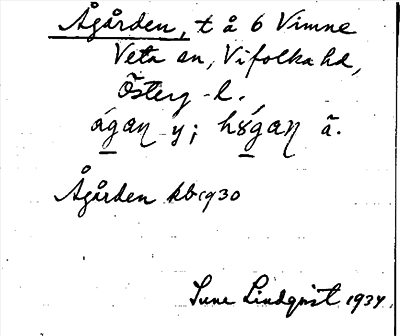 Ågården, t å 6 Vimne
Veta sn, Vifolka hd,
Österg. l.
ågaɳ y; hɤ́gaɳ ä.
Ågården kb 1930
Sune Lindqvist 1934.